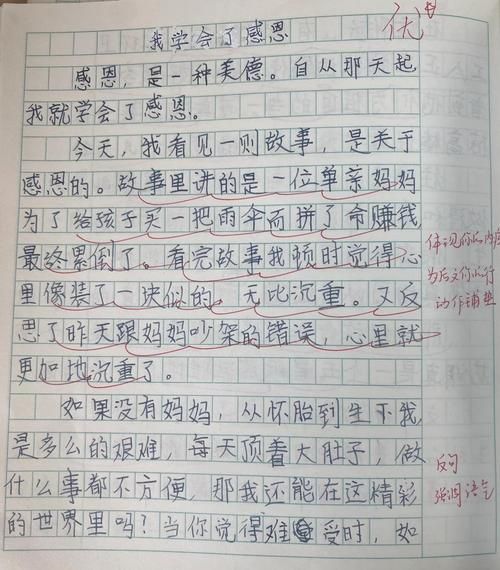 优
我学会了感恩
感恩，是一种美德。自从那天起
我就学会了感恩。
今天，我看见一则故事，是关于
感恩的。故事里讲的是一位单亲妈妈
为了给孩子买一把雨伞而拼了命赚钱
最终累倒了。看完故事我顿时觉得心
里像装了一块似的。无比沉重。又反
思了昨天跟妈妈吵架的错误，心里就
更加地沉重了。
如果没有妈妈，从怀胎到生下我，
是多么的艰难，每天顶着大肚子，做
什么事都不方便，那我还能在这精彩
的世界里吗？当你觉得难受时，如
体现你的内疚
为后文你的行
动作铺垫
反问
强调语气